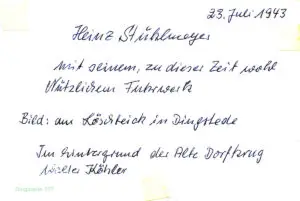 23. Juli 1943
Heinz Stuhlmeyer
mit seinem, zu dieser Zeit wohl
Nützlichem Fuhrwerk
Bild: am Löschteich in Dingstede
Im Hintergrund der Alte Dorfkrug
Köhler